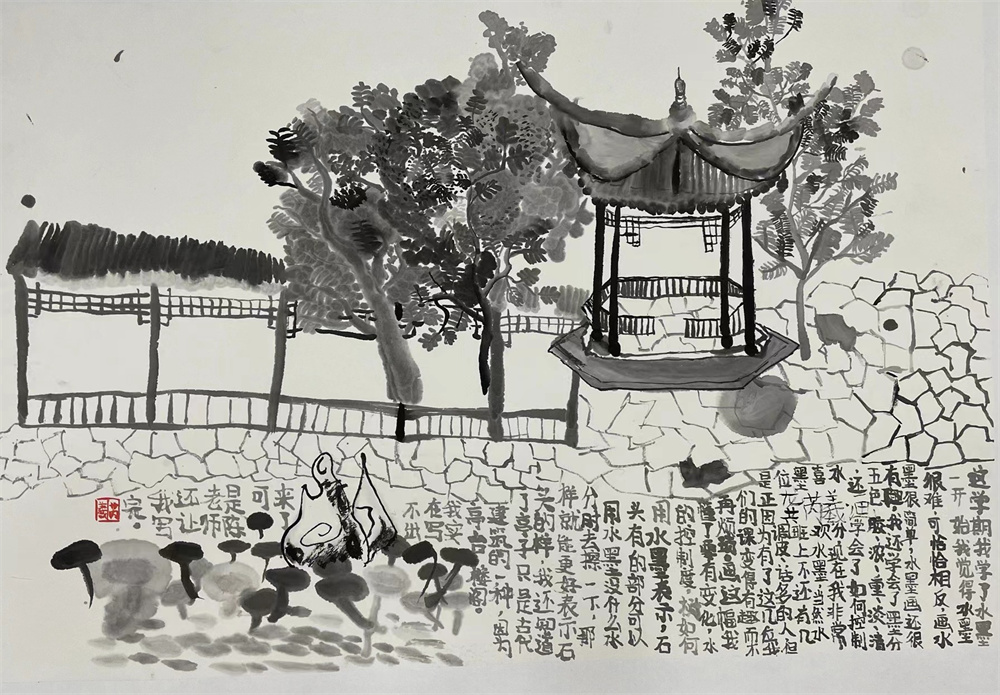 这学期我学了水墨
一开始我觉得水墨
很难，可恰恰相反，画水
墨很简单，水墨画还很
有趣，我还学会了墨分
五色：焦、浓、重、淡、清
，还学会了如何控制
水分，现在我非常
喜欢水墨，当然水
墨班上不还有几
位尤其调皮、话多的人，但
是正因为有了这几位我
们的课变得有趣而不
再烦，画这幅我
懂了要有变化，水
的控制度，树如何
用水墨表示，石
头有的部分可以
用水墨没什么水
分时去擦一下，那
样就能更好表示石
头的样，我还知道
了亭子只是古代
建筑的一种，因为
亭台楼阁。
我实
在写
不出
来了。
可
是陈
老师
还让
我写
完。